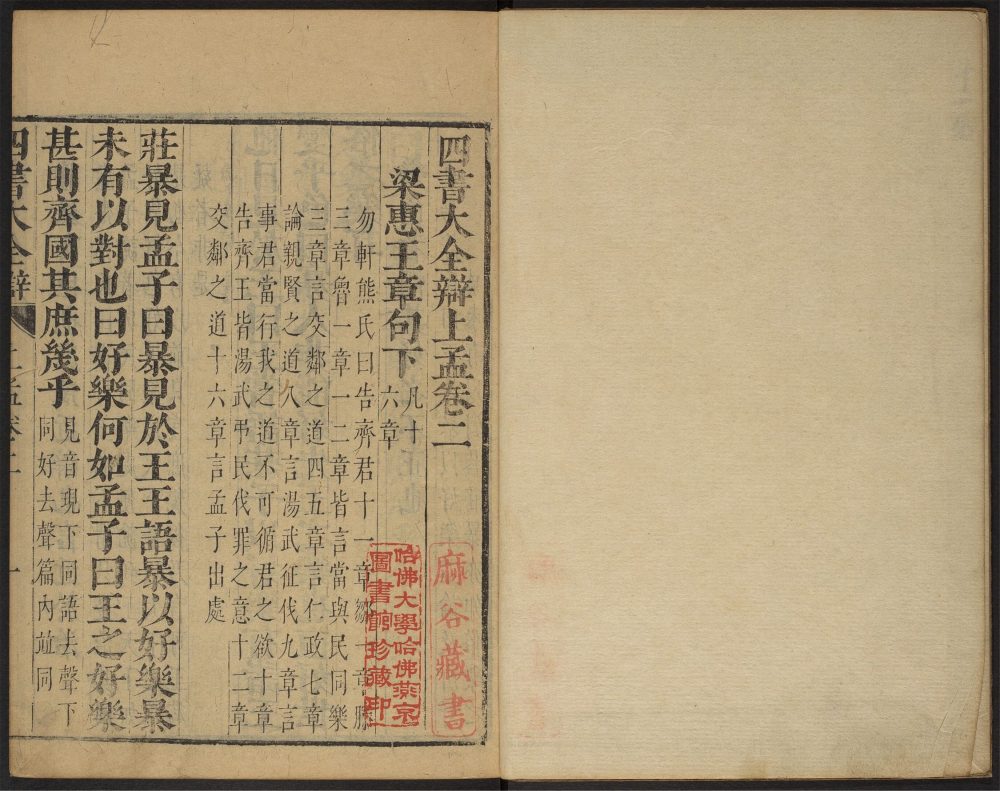 四書大全辯上孟卷二
麻谷藏書
梁惠王章句下
凡十
六章
哈佛大學哈佛燕京
圖書館珍藏印
勿軒熊氏曰告齊君十一章鄒一章滕
三章魯一章一二章皆言當與民同樂
三章言交鄰之道四五章言仁政七章
論親賢之道八章言湯武征伐九章言
事君當行我之道不可循君之欲十章
告齊王皆湯武弔民伐罪之意十二章
交鄰之道十六章言孟子出處
莊暴見孟子曰暴見於王王語暴以好樂暴
未有以對也曰好樂何如孟子曰王之好樂
甚則齊國其庶幾乎
見音現下同語去聲下
同好去聲篇內並同
四書大全辯
上孟卷二
一